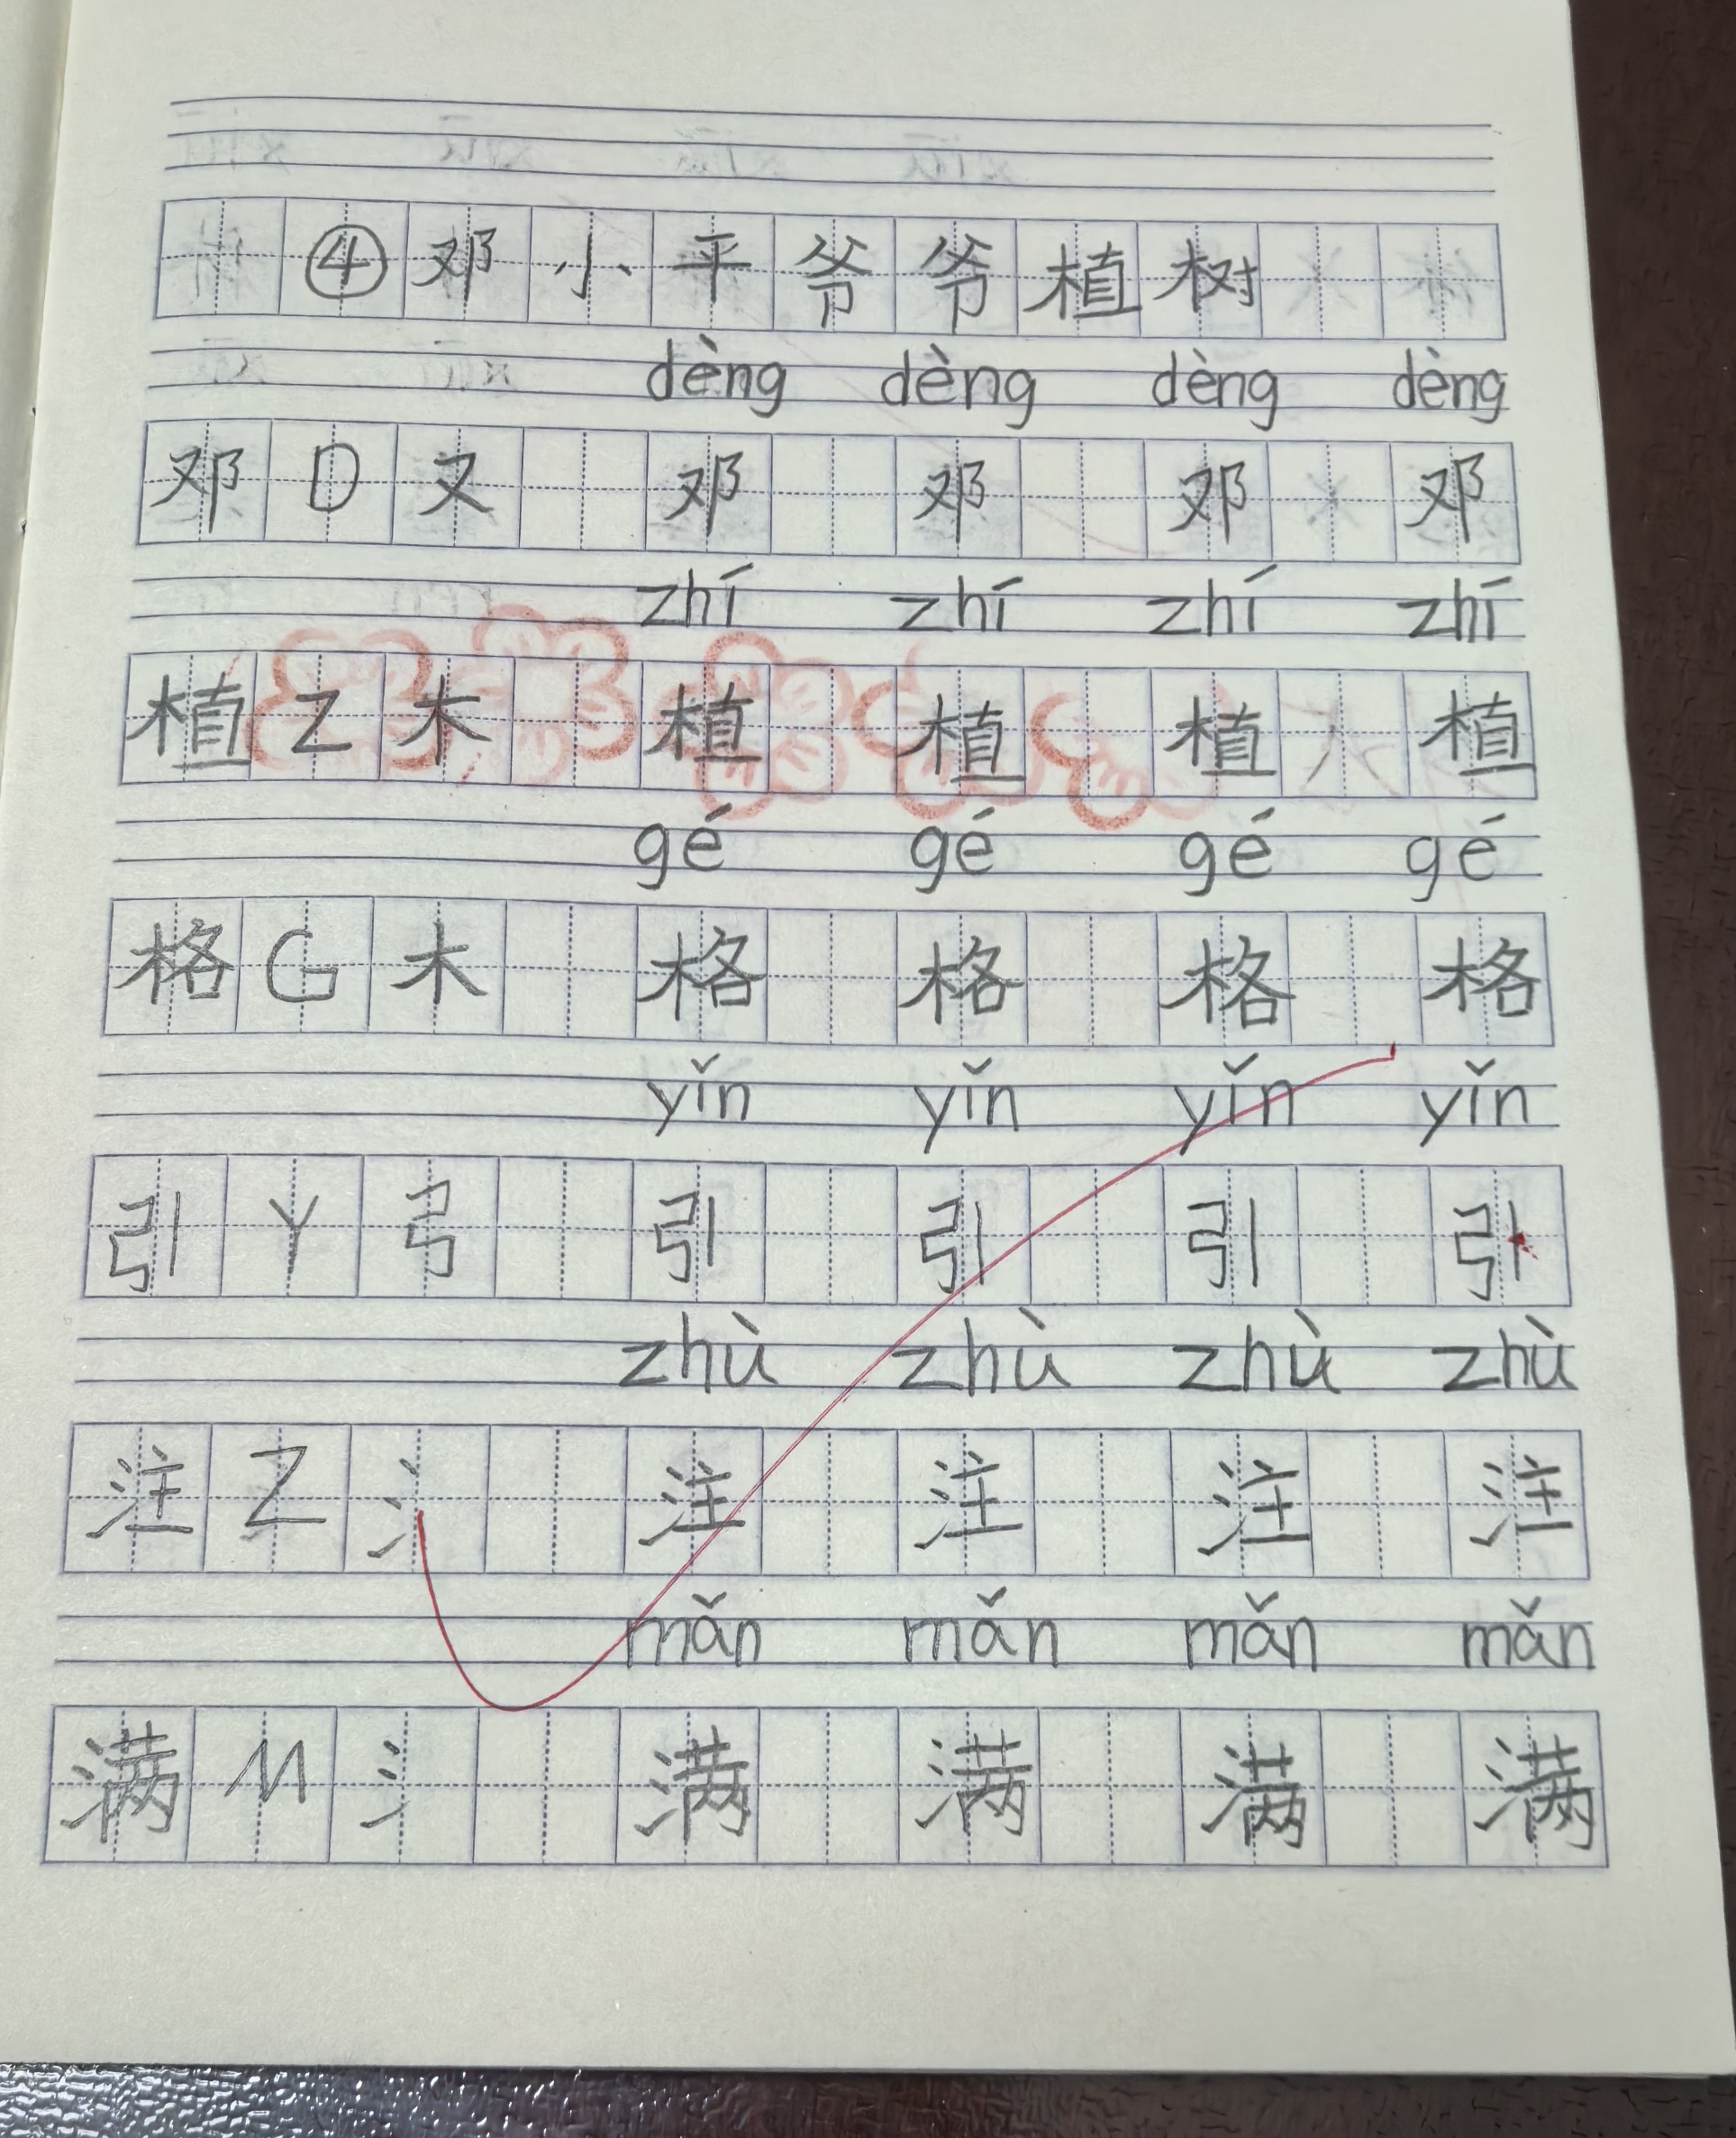 ④邓小平爷爷植树
dèng dèng dèng dèng
邓 D 又 邓 邓 邓 邓
zhí zhí zhí zhí
植 Z 木 植 植 植 植
gé gé gé gé
格 G 木 格 格 格 格
yǐn yǐn yǐn yǐn
引 Y 弓 引 引 引 引
zhù zhù zhù zhù
注 Z 氵 注 注 注 注
mǎn mǎn mǎn mǎn
满 M 氵 满 满 满 满